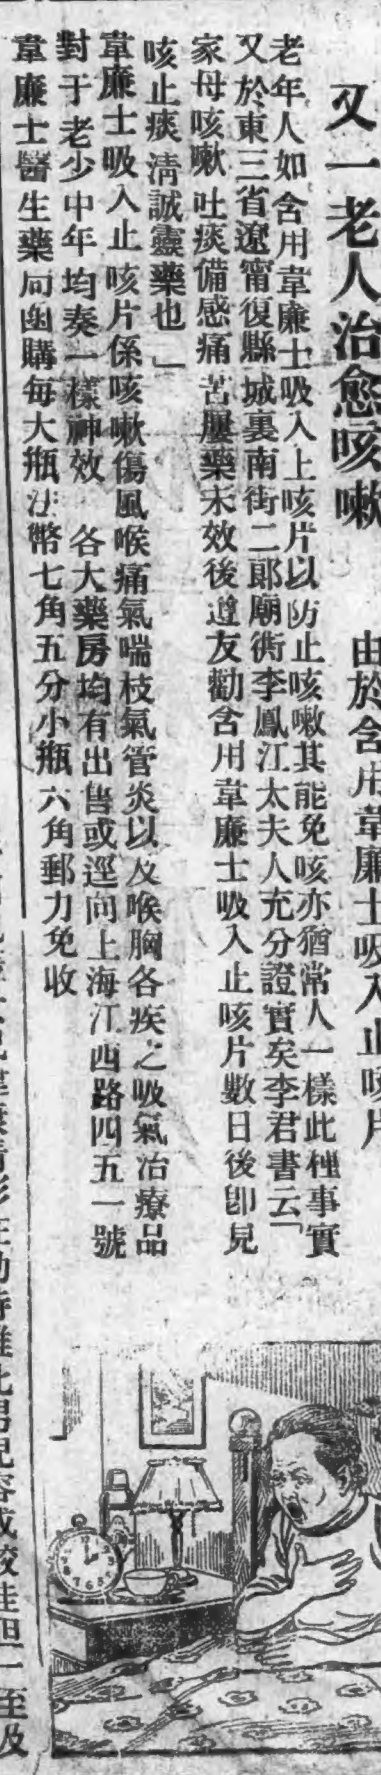 又一老人治愈咳嗽
由於含用韋廉士吸入止咳片
老年人如含用韋廉士吸入止咳片以防止咳嗽其能免咳亦猶常人一樣此種事實
又於東三省遼甯復縣城裏南街二郎廟街李鳳江太夫人充分證實矣李君書云「
家母咳嗽吐痰備感痛苦屢藥未效後遵友勸含用韋廉士吸入止咳片數日後卽見
咳止痰清誠靈藥也」
韋廉士吸入止咳片係咳嗽傷風喉痛氣喘枝氣管炎以及喉胸各疾之吸氣治療品
對于老少中年均奏一樣神效 各大藥房均有出售或逕向上海江西路四五一號
韋廉士醫生藥局函購每大瓶法幣七角五分小瓶六角郵力免收